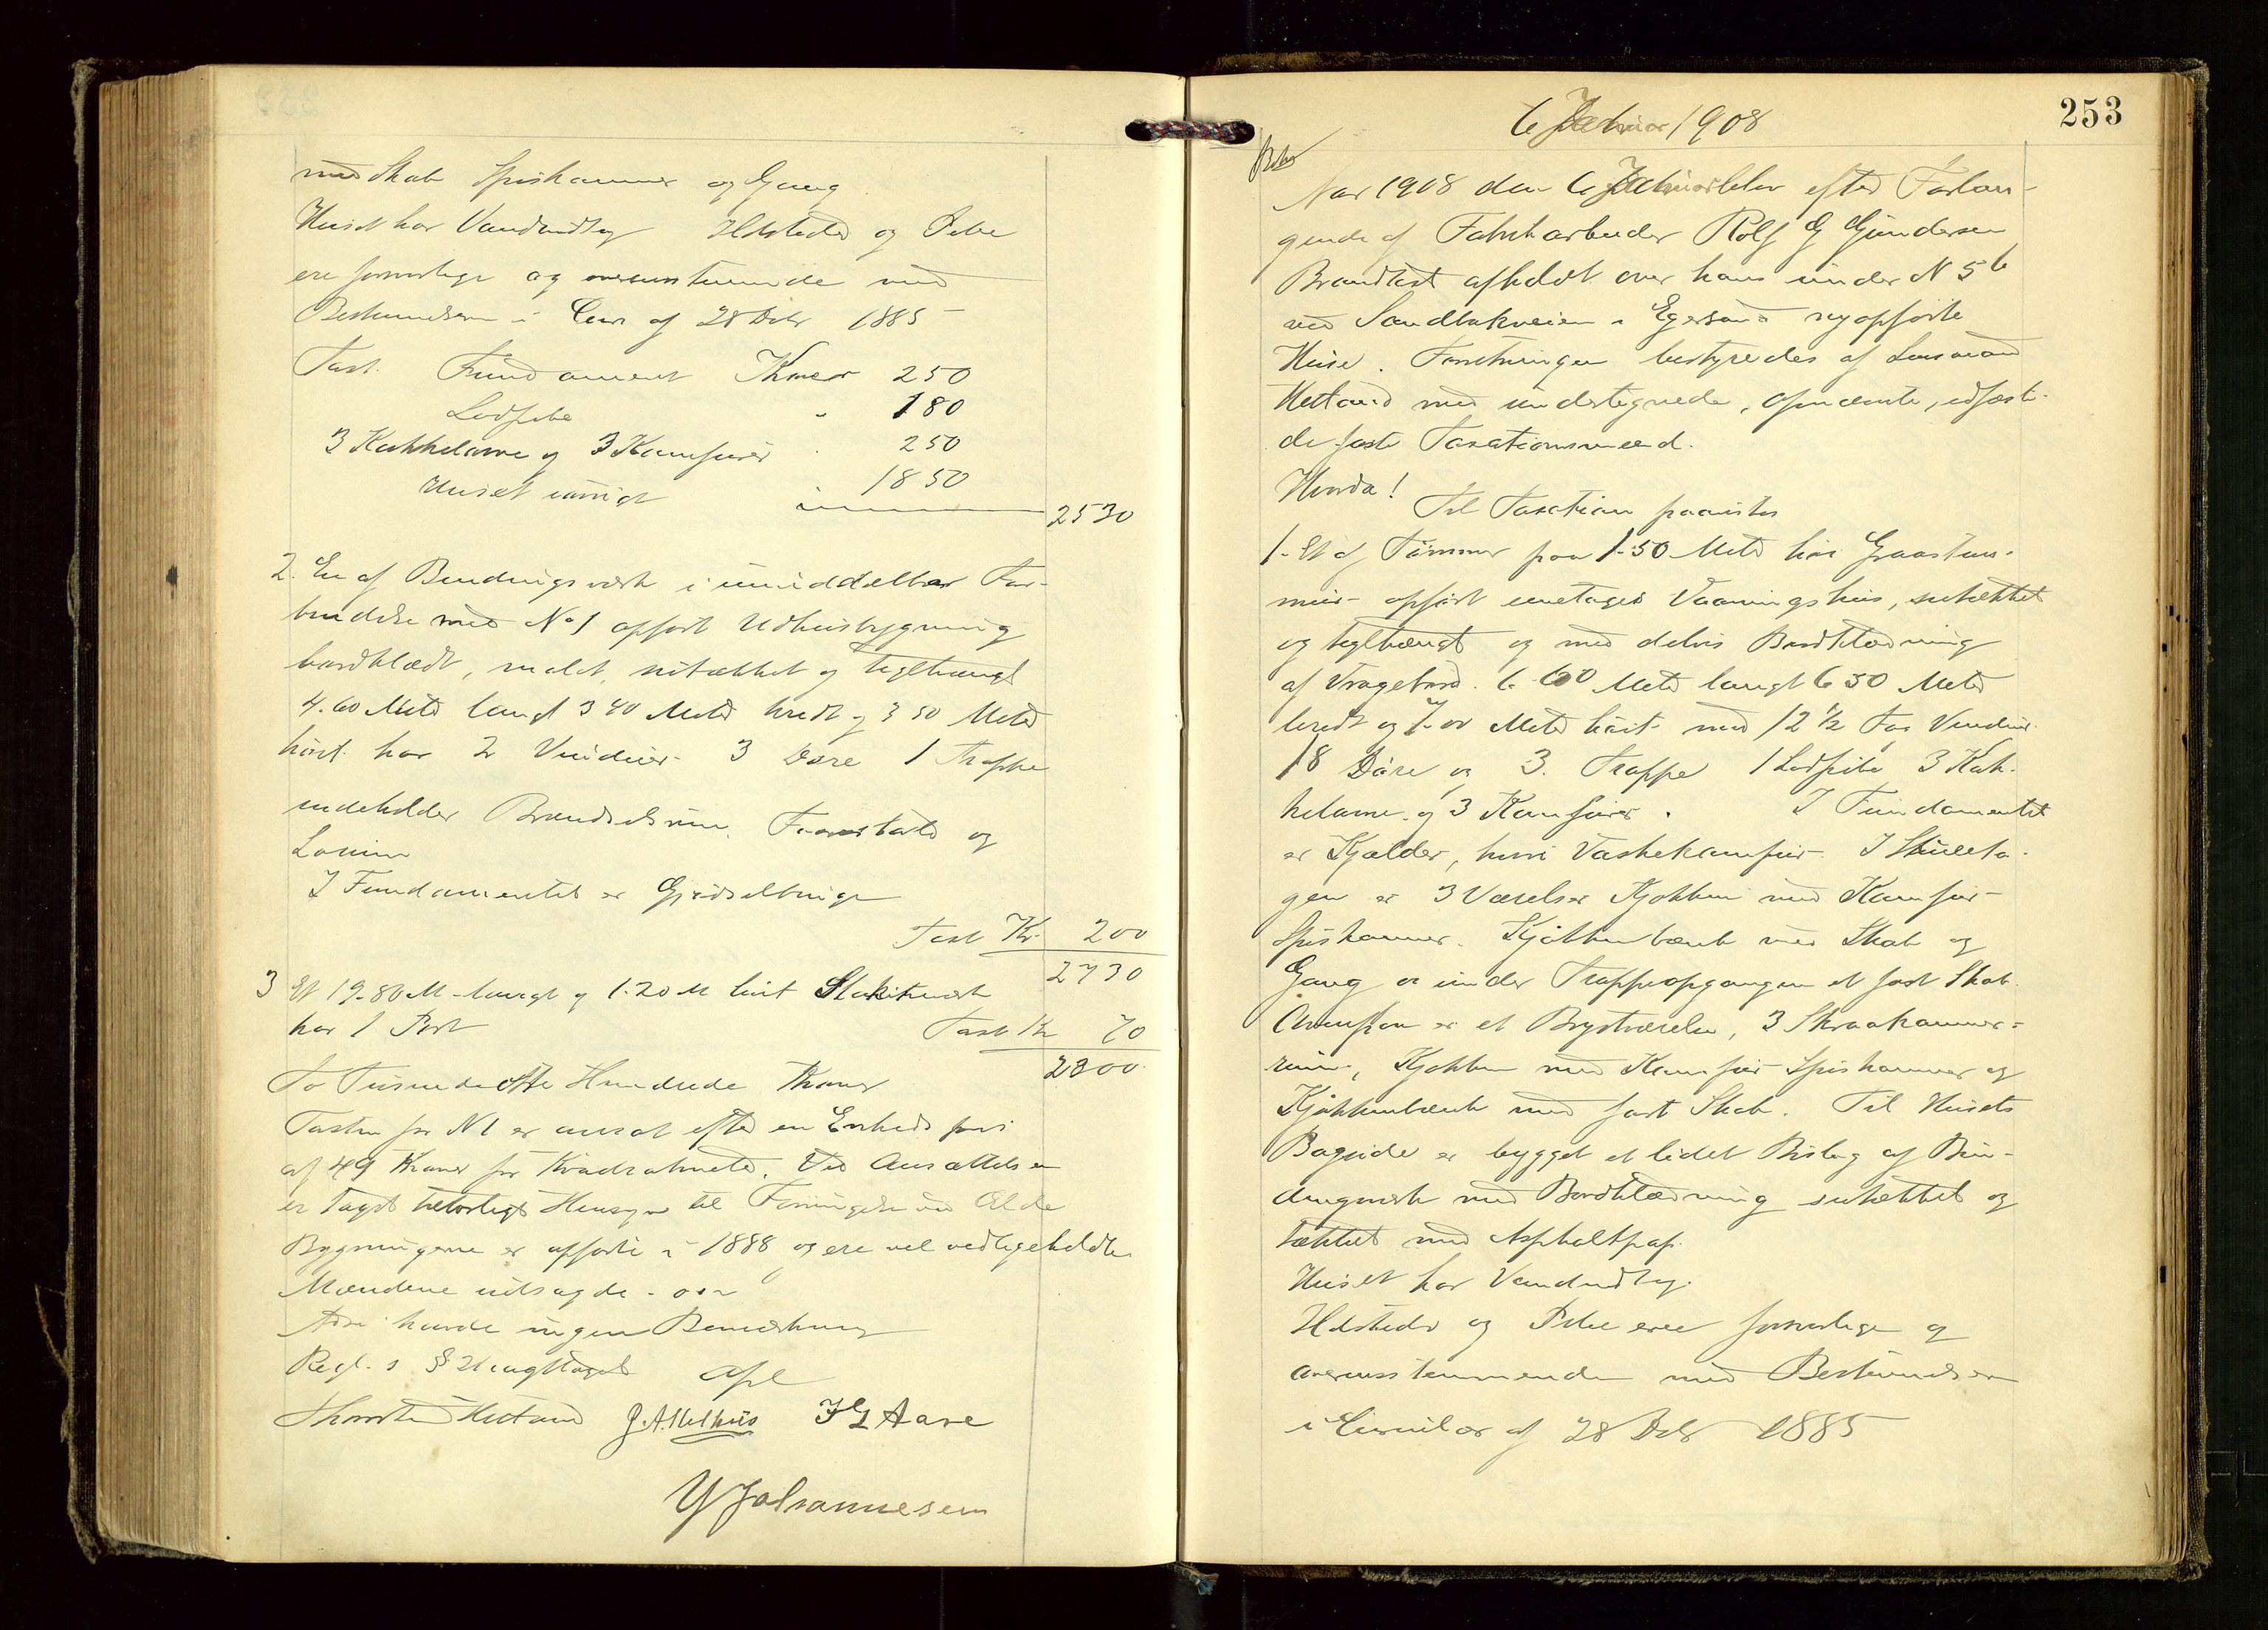 med Skab Spiskammer og Gang
Huset har Vandindlæg Ildsteder og Pibe
ere forsvarlige og overensstemmende med
Bestemmelsen i Circ af 28 Dcbr 1885
Taxt. Fundament Kroner 250
Lodpibe " 180
3 Kakkelovne og 3 Komfurer " 250
Huset øvrigt " 1850
2530
2. En af Bindingsværk i umiddelbar For-
bindelse med No 1 opført Udhusbygning
bordklædt, malet, sutækket og teglhængt
4.60 Meter langt 3 40 Meter bredt og 3 50 Meter
høit. har 2 Vinduer 3 Døre 1 Trappe
indeholder Brændselsrum, Faarestald og
Lovrum
I Fundamentet er Gjødselbinge
Taxt Kr. 200
2730
3 Et 19.80 M langt og 1.20 M høit Stakitværk
har 1 Port Taxt Kr 70
2800
To Tusende otte Hundrede Kroner
Taxten for N 1 er ansat efter en Enheds pris
af 49 Kroner pr Kvadratmeter. Ved Ansættelsen
er taget tilbørligt Hensyn til Forringelse ved Ælde
Bygningerne er opførte i 1888 og ere vel vedligeholdte
Mændene udsagde
havde ingen Bemærkning
Regl. s § 21 iagttaget Afsl
Thorsten Hetland J. A. Melhus J G Aase
Y Johannesen
253
6 Februar 1908
Aar 1908 den 6 Februar blev efter Forlan-
gende af Fabrikarbeider Rolf G Gundersen
Brandtaxt afholdt over hans under N 56
ved Sandbakveien i Egersund nyopførte
Huse. Forretningen bestyredes af Lensmand
Hetland med undertegnede, opnævnte, edfæste-
de faste Taxationsmænd.
Hvorda!
Til Taxation paavistes
1. Et af Tømmer paa 1.50 Meter høi Graastens-
mur opført enetages Vaaningshus, sutækket
og teglhængt og med delvis Bordklædning
af Vragebord. 6.60 Meter langt 6 50 Meter
bredt og 7.00 Meter høit med 12 ½ Fag Vinduer
18 Døre og 3. Trappe 1 Lodpibe 3 Kak-
kelovne og 3 Komfurer. I Fundamentet
er Kjælder, hvori Vaskekomfur. I Stueeta-
gen er 3 Værelser Kjøkken med Komfur
Spiskammer. Kjøkkenbænk med Skab og
Gang og under Trappeopgangen et fast Skab.
Ovenpaa er et Brystværelse, 3 Skraakammer-
rum, Kjøkken med Komfur Spiskammer og
Kjøkkenbænk med fast Skab. Til Husets
Bagside er bygget et lidet Bislag af Bin-
dingsværk med Bordklædning sutækket og
tækket med Asphaltpap.
Huset har Vandindlæg.
Ildsteder og Pibe ere forsvarlige og
overensstemmende med Bestemmelsen
i Cirkulær af 28 Dcbr 1885